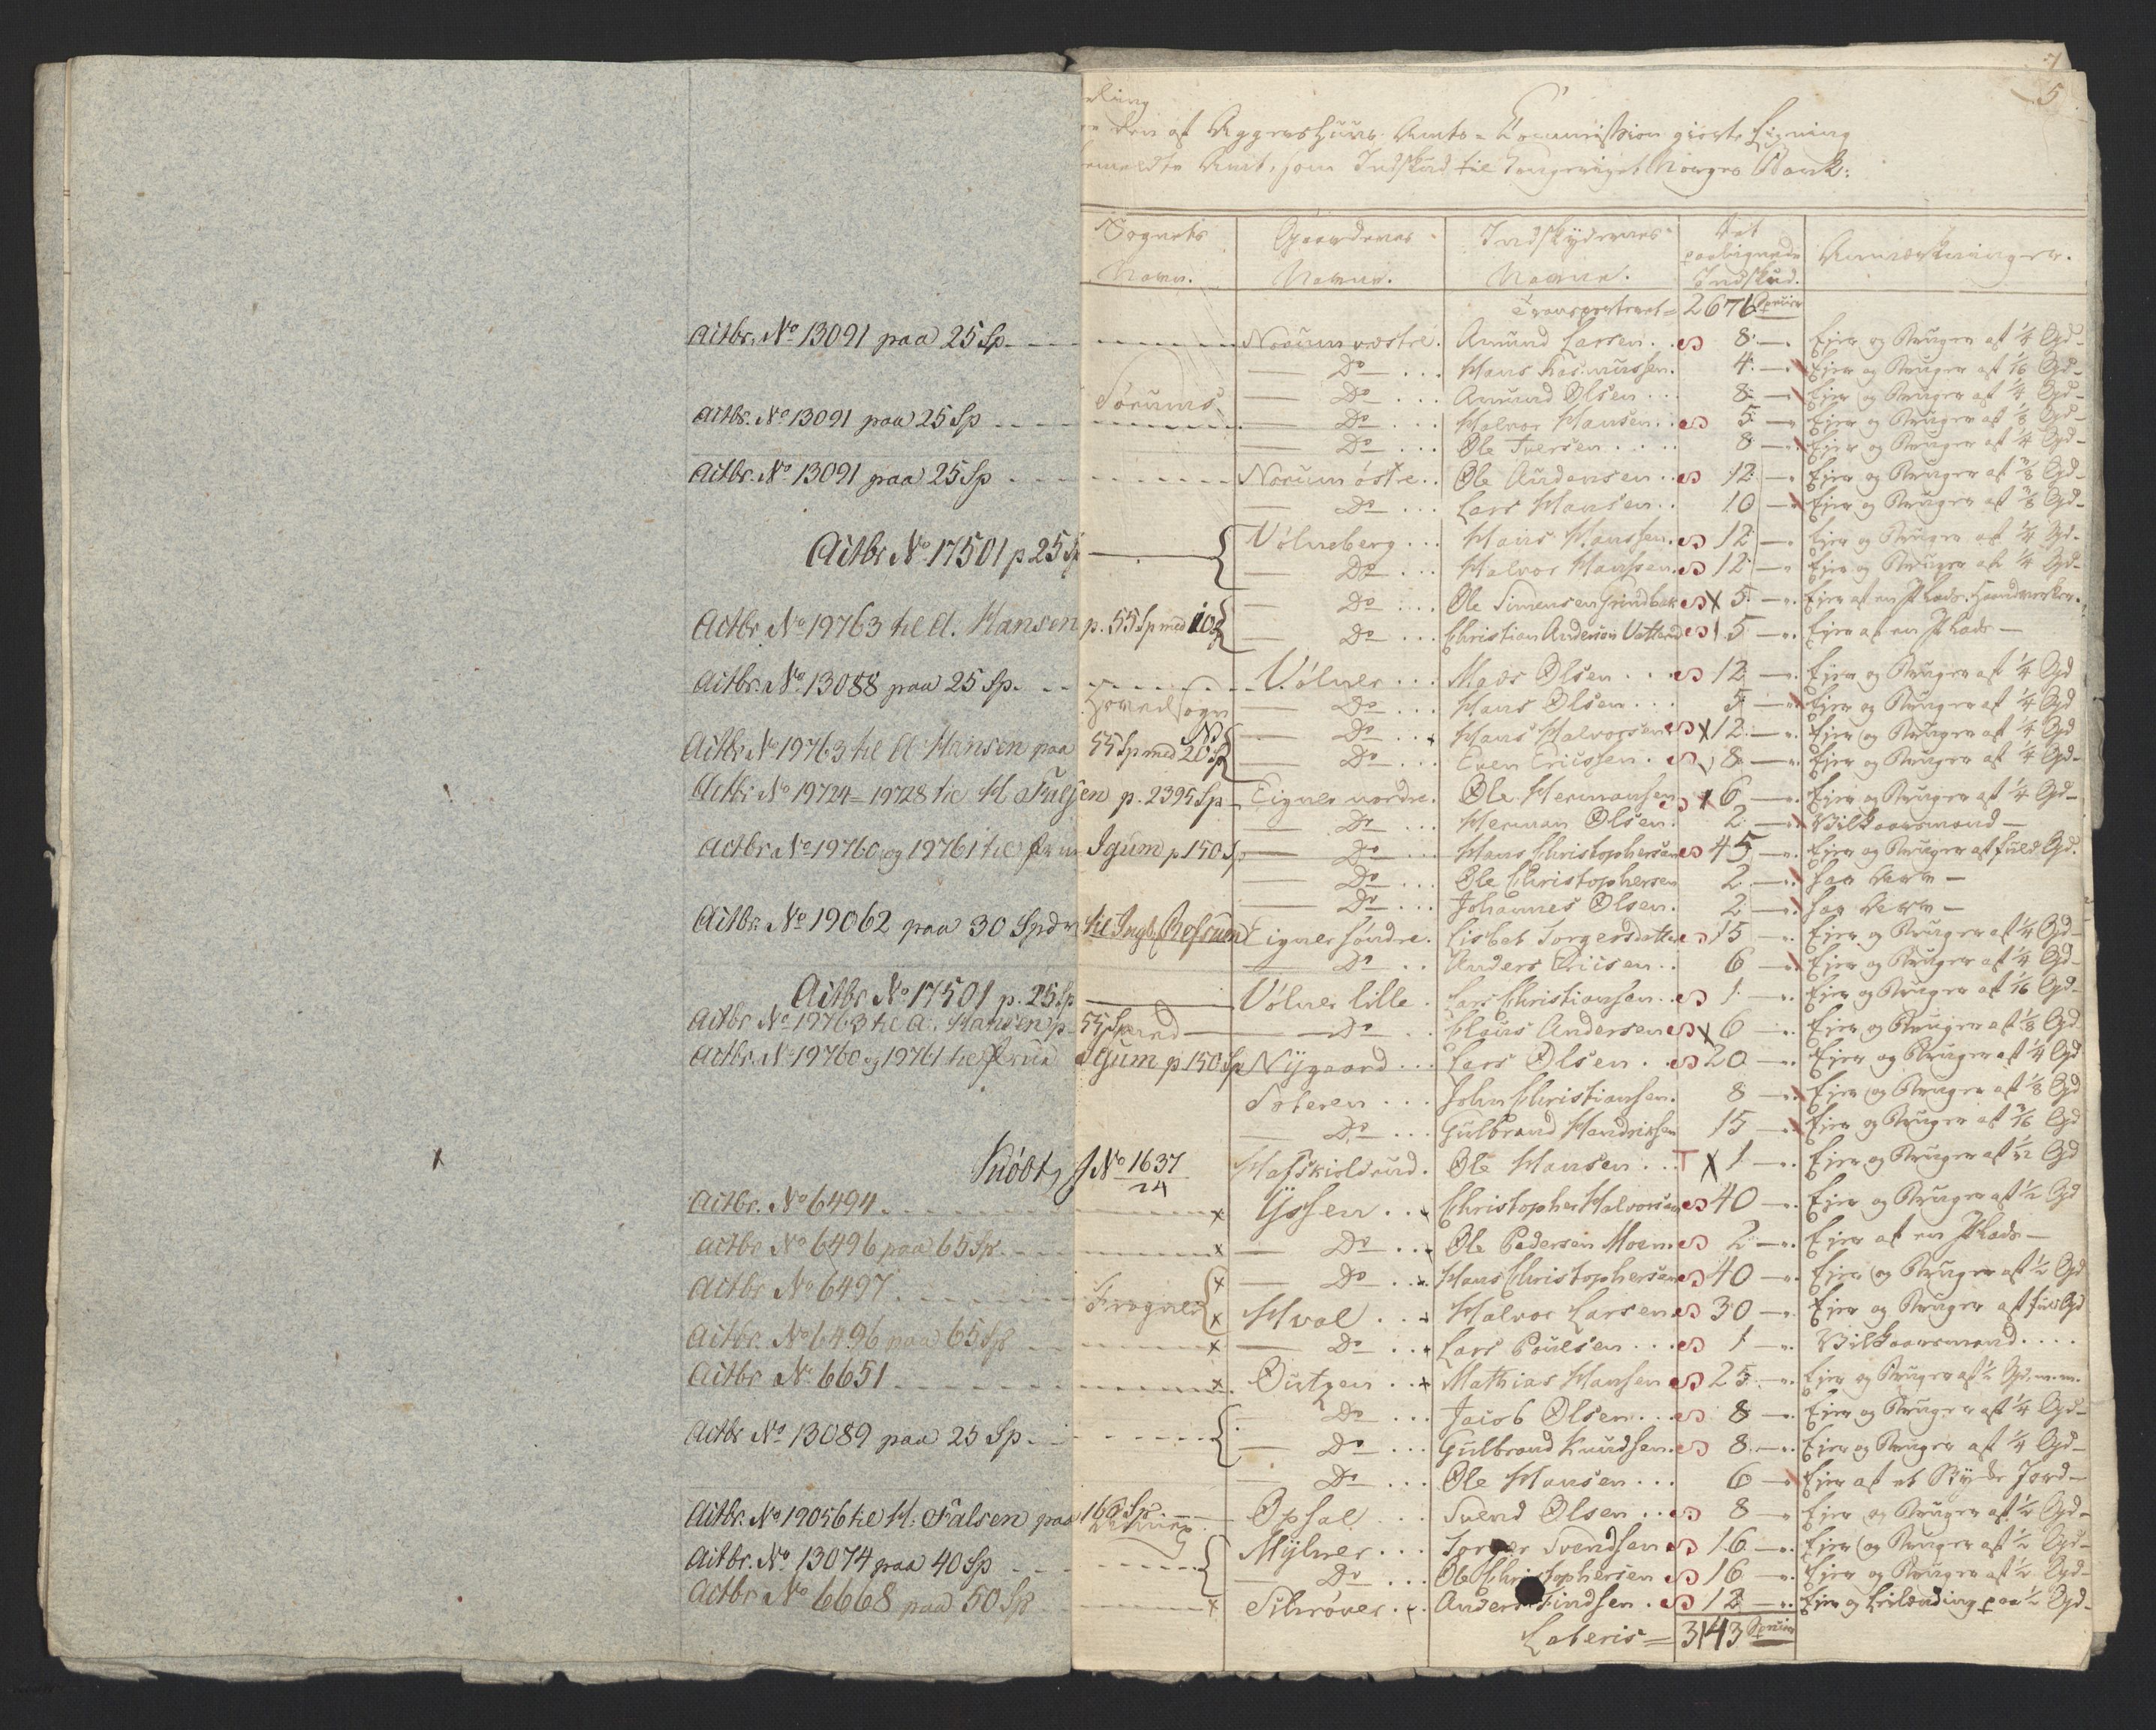 7
5
den af Aggershuus Amts-Commission giorte Ligning
Amt, som Indskud til Kongeriget Norges Bank:
Sognets Navn. Gaardenes Navne. Indskydernes Navne. Det paalignede Indskud. Anmærkninger.
Transporteret = 2676 Species
Actbr. No 13091 paa 25 Sp. Norum westre. Amund Larsen. 8 Ejer og Bruger af 1/4 Gd
Do Hans Rasmussen. 4 Ejer og Bruger af 1/16 Gd
Sørums Do Amund Olsen 8 Ejer og Bruger af 1/4 Gd
Actbr. No 13091 paa 25 Sp Do Halvor Hansen 5 Ejer og Bruger af 1/8 Gd
Do Ole Iversen 8 Ejer og Bruger af 1/4 Gd
Actbr. No 13091 paa 25 Sp Norum østre Ole Andersen 12 Ejer og Bruger af 3/8 Gd
Do Lars Hansen 10 Ejer og Bruger af 3/8 Gd
Actbr No 17501 p 25 Sp Vølneberg Hans Hanssen. 12 Ejer og Bruger af 1/4 Gd
Do Halvor Hanssen. 12 Ejer og Bruger af 1/4 Gd
Do Ole Simensen Grindbak x 5 Ejer af en Plads. Haandverker.
Actbr No 19763 til A. Hansen p. 55 Sp med 10 Do Christian Andersen 5 Ejer af en Plads
Actbr. No 13088 paa 25 Sp. Vølner Mads Olsen 12 Ejer og Bruger af 1/4 Gd
Hovedsogn Do Hans Olsen 5 Ejer og Bruger af 1/4 Gd
Do Hans Halvorsen x 12 Ejer og Bruger af 1/4 Gd
Actbr No 19763 til A Hansen paa 55 Sp med 20 Sp Do Even Ericssen 8 Ejer og Bruger af 1/4 Gd
Actbr No 19724 = 19728 til H Falsen p. 2395 Sp Eigner nordre. Ole Hermansen x 6 Ejer og Bruger af 1/4 Gd
Do Herman Olsen. 2 Vilkaarsmand
Actbr No 19760 og 19761 til Igum p 150 Sp Do Hans Christophersen 45 Ejer og Bruger af fuld Gd.
Do Ole Christophersen 2
Do Johannes Olsen. 2
Actbr. No 19062 paa 30 Spd til Ingb. Eigner søndre. Lisbet Torgersdatter 15 Ejer og Bruger af 1/4 Gd
Do Anders Ericsen 6 Ejer og Bruger af 1/4 Gd
Actbr No 17501 p. 25 Sp Vølner lille. Lars Christiansen 1 Ejer og Bruger af 1/16 Gd
Actbr No 19763 til A. Hansen p 55 Sp Do Claus Andersen x 6 Ejer og Bruger af 1/8 Gd
Actbr. No 19760 og 19761 til Igum p 150 Sp Nÿgaard Lars Olsen 20 Ejer og Bruger af 1/4 Gd
Soteren John Christiansen. 8 Ejer og Bruger af 1/8 Gd
Do Gulbrand Hendriksen 15 Ejer og Bruger af 3/16 Gd
Kiøbt, J No 1637/24 Hafskiolsrud. Ole Hansen x 1 Ejer og Bruger af 1/32 Gd
Actbr. No 6494 x Ÿssen Christopher Halvorsen 40 Ejer og Bruger af 1/2 Gd
Actbr No 6496 paa 65 Sp. x Do Ole Pedersen Moen 2 Ejer af en Plads
Actbr No 6497 x Do Hans Christophersen 40 Ejer og Bruger af 1/2 Gd
Frogner x Hval Halvor Larsen 30 Ejer og Bruger af fuld Gd
Actbr. No 6496 paa 65 Sp x Do Lars Poulsen 1 Vilkaarsmand
Actbr No 6651 x Outzen Mathias Hansen 25 Ejer og Bruger af 1/2 Gd. m.m.
Do Jacob Olsen 8 Ejer og Bruger af 1/4 Gd
Actbr No 13089 paa 25 Sp. Do Gulbrand Knudsen. 8 Ejer og Bruger af 1/4 Gd
Do Ole Hansen 6 Ejer af et Rydde Jord
Actbr. No 19056 til H: Falsen paa 160 Sp. Opsal Svend Olsen 8 Ejer og Bruger af 1/2 Gd
Actbr. No 13074 paa 40 Sp Mÿlner Torger Svendsen 16 Ejer og Bruger af 1/2 Gd
Do Ole Christophersen 16 Ejer og Bruger af 1/2 Gd
Actbr No 6668 paa 50 Sp x Anders Findsen 12 Ejer og Leilænding paa 1/2 Gd
Lateris = 3143 Species